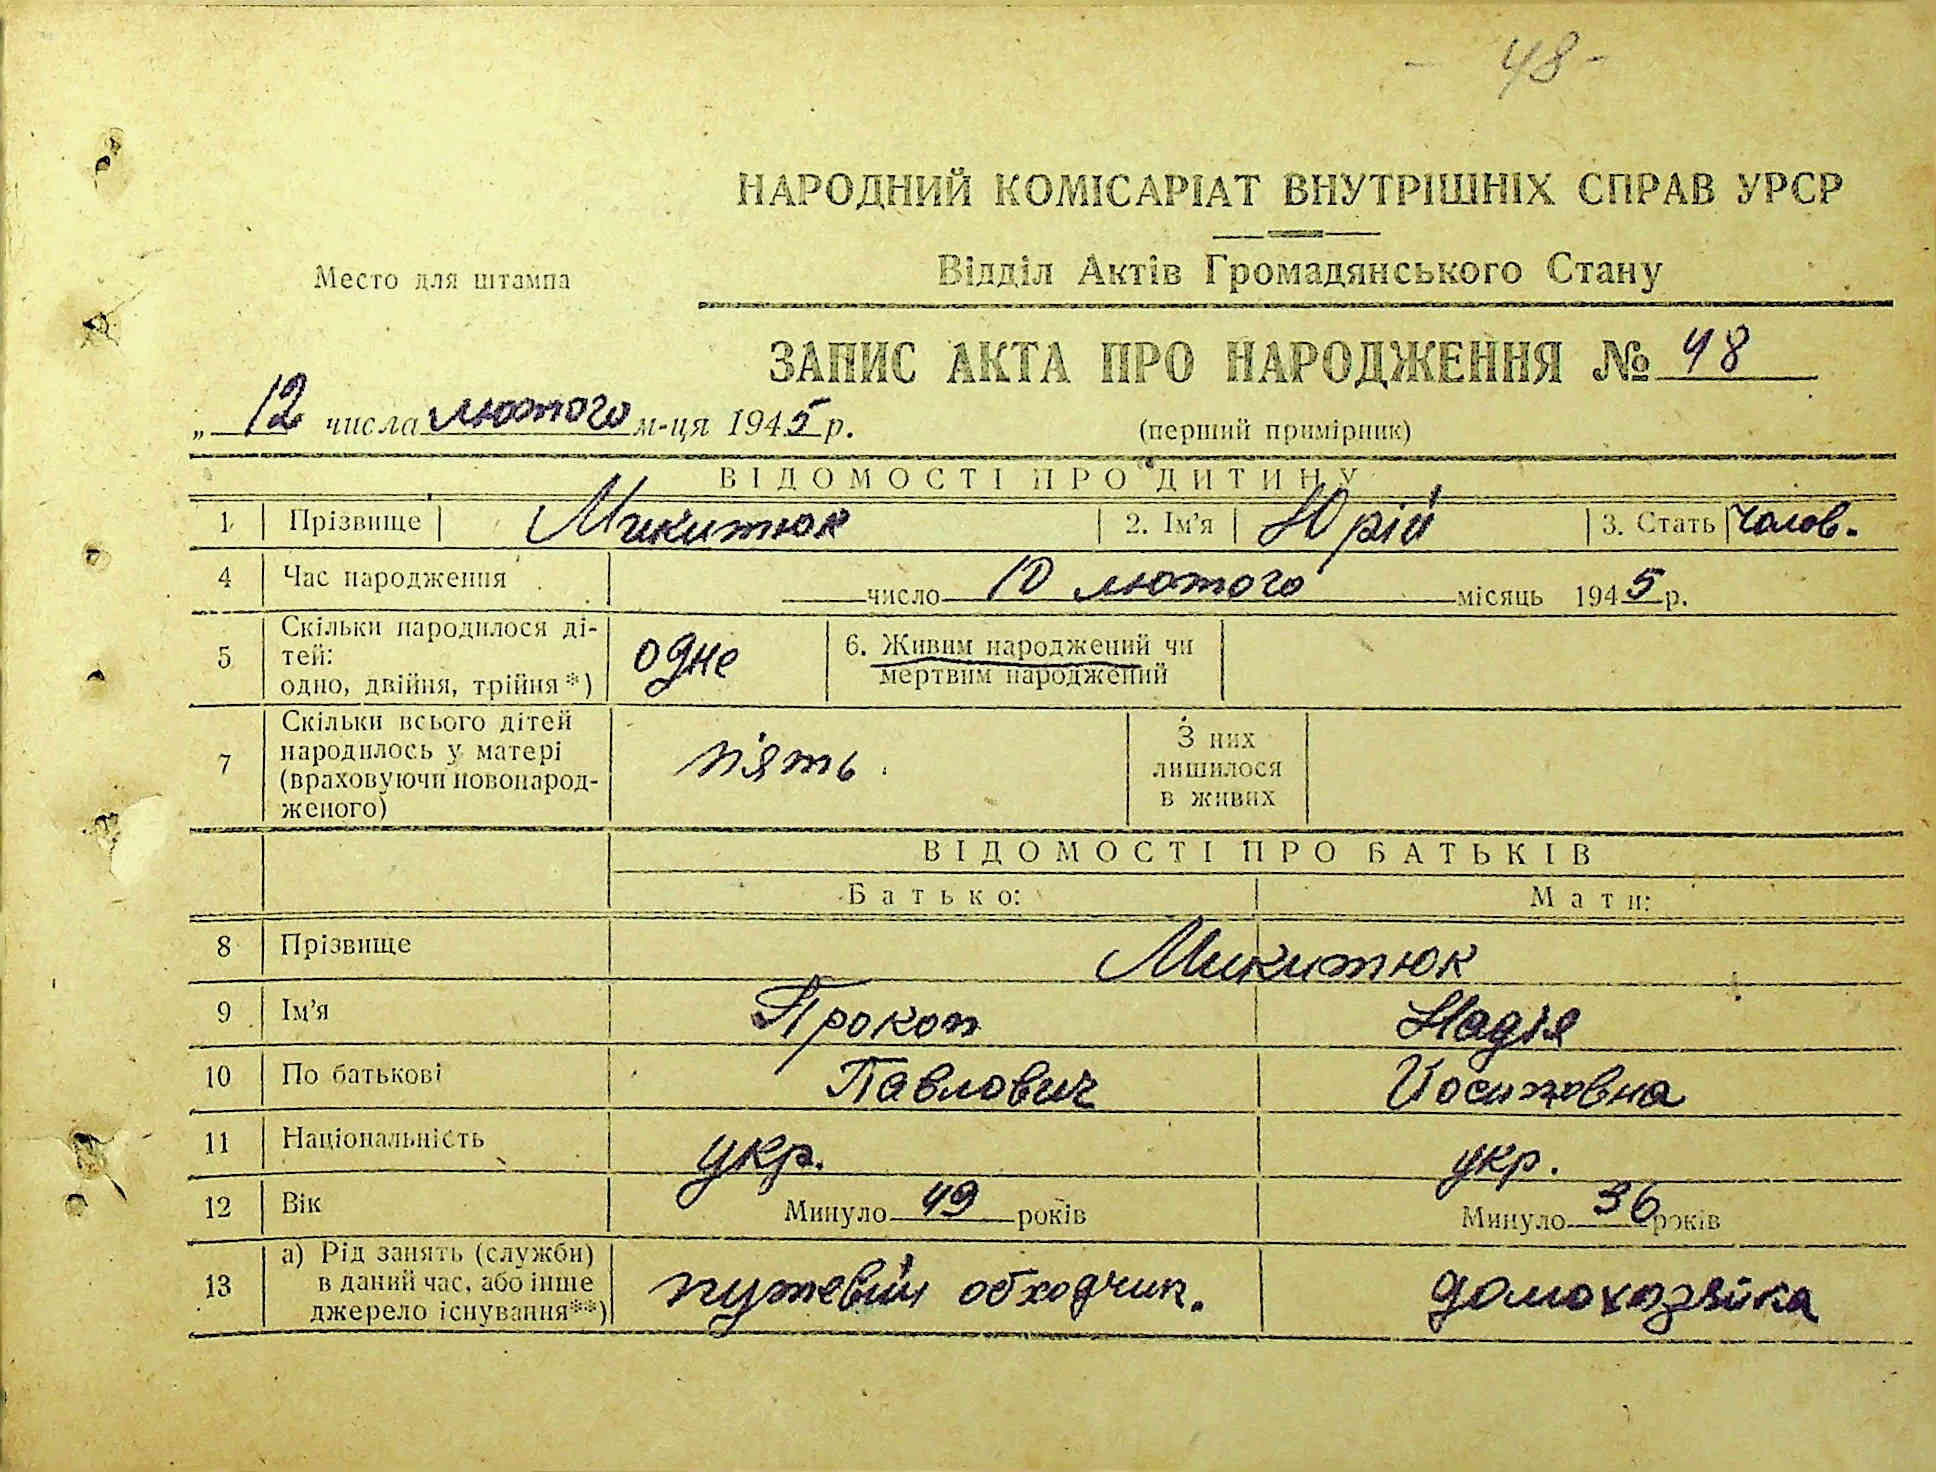 - 48 -
НАРОДНИЙ КОМІСАРІАТ ВНУТРІШНІХ СПРАВ УРСР
Відділ Актів Громадянського Стану
Место для штампа
ЗАПИС АКТА ПРО НАРОДЖЕННЯ № 48
„ 12 числа лютого м-ця 1945 р.
(перший примірник)
ВІДОМОСТІ ПРО ДИТИНУ
1 Прізвище Микитюк 2. Ім'я Юрій 3. Стать чолов.
4 Час народження число 10 лютого місяць 1945 р.
5 Скільки народилося ді-
тей:
одно, двійня, трійня*) одне
6. Живим народжений чи
мертвим народжений
7 Скільки всього дітей
народилось у матері
(враховуючи новонарод-
женого) п'ять
З них
лишилося
в живих
ВІДОМОСТІ ПРО БАТЬКІВ
Батько: Мати:
8 Прізвище Микитюк
9 Ім'я Прокоп Надія
10 По батькові Павлович Иосиповна
11 Національність укр. укр.
12 Вік Минуло 49 років Минуло 36 років
13 а) Рід занять (служби)
в даний час, або інше
джерело існування**) путевий обходчик. домохозяйка